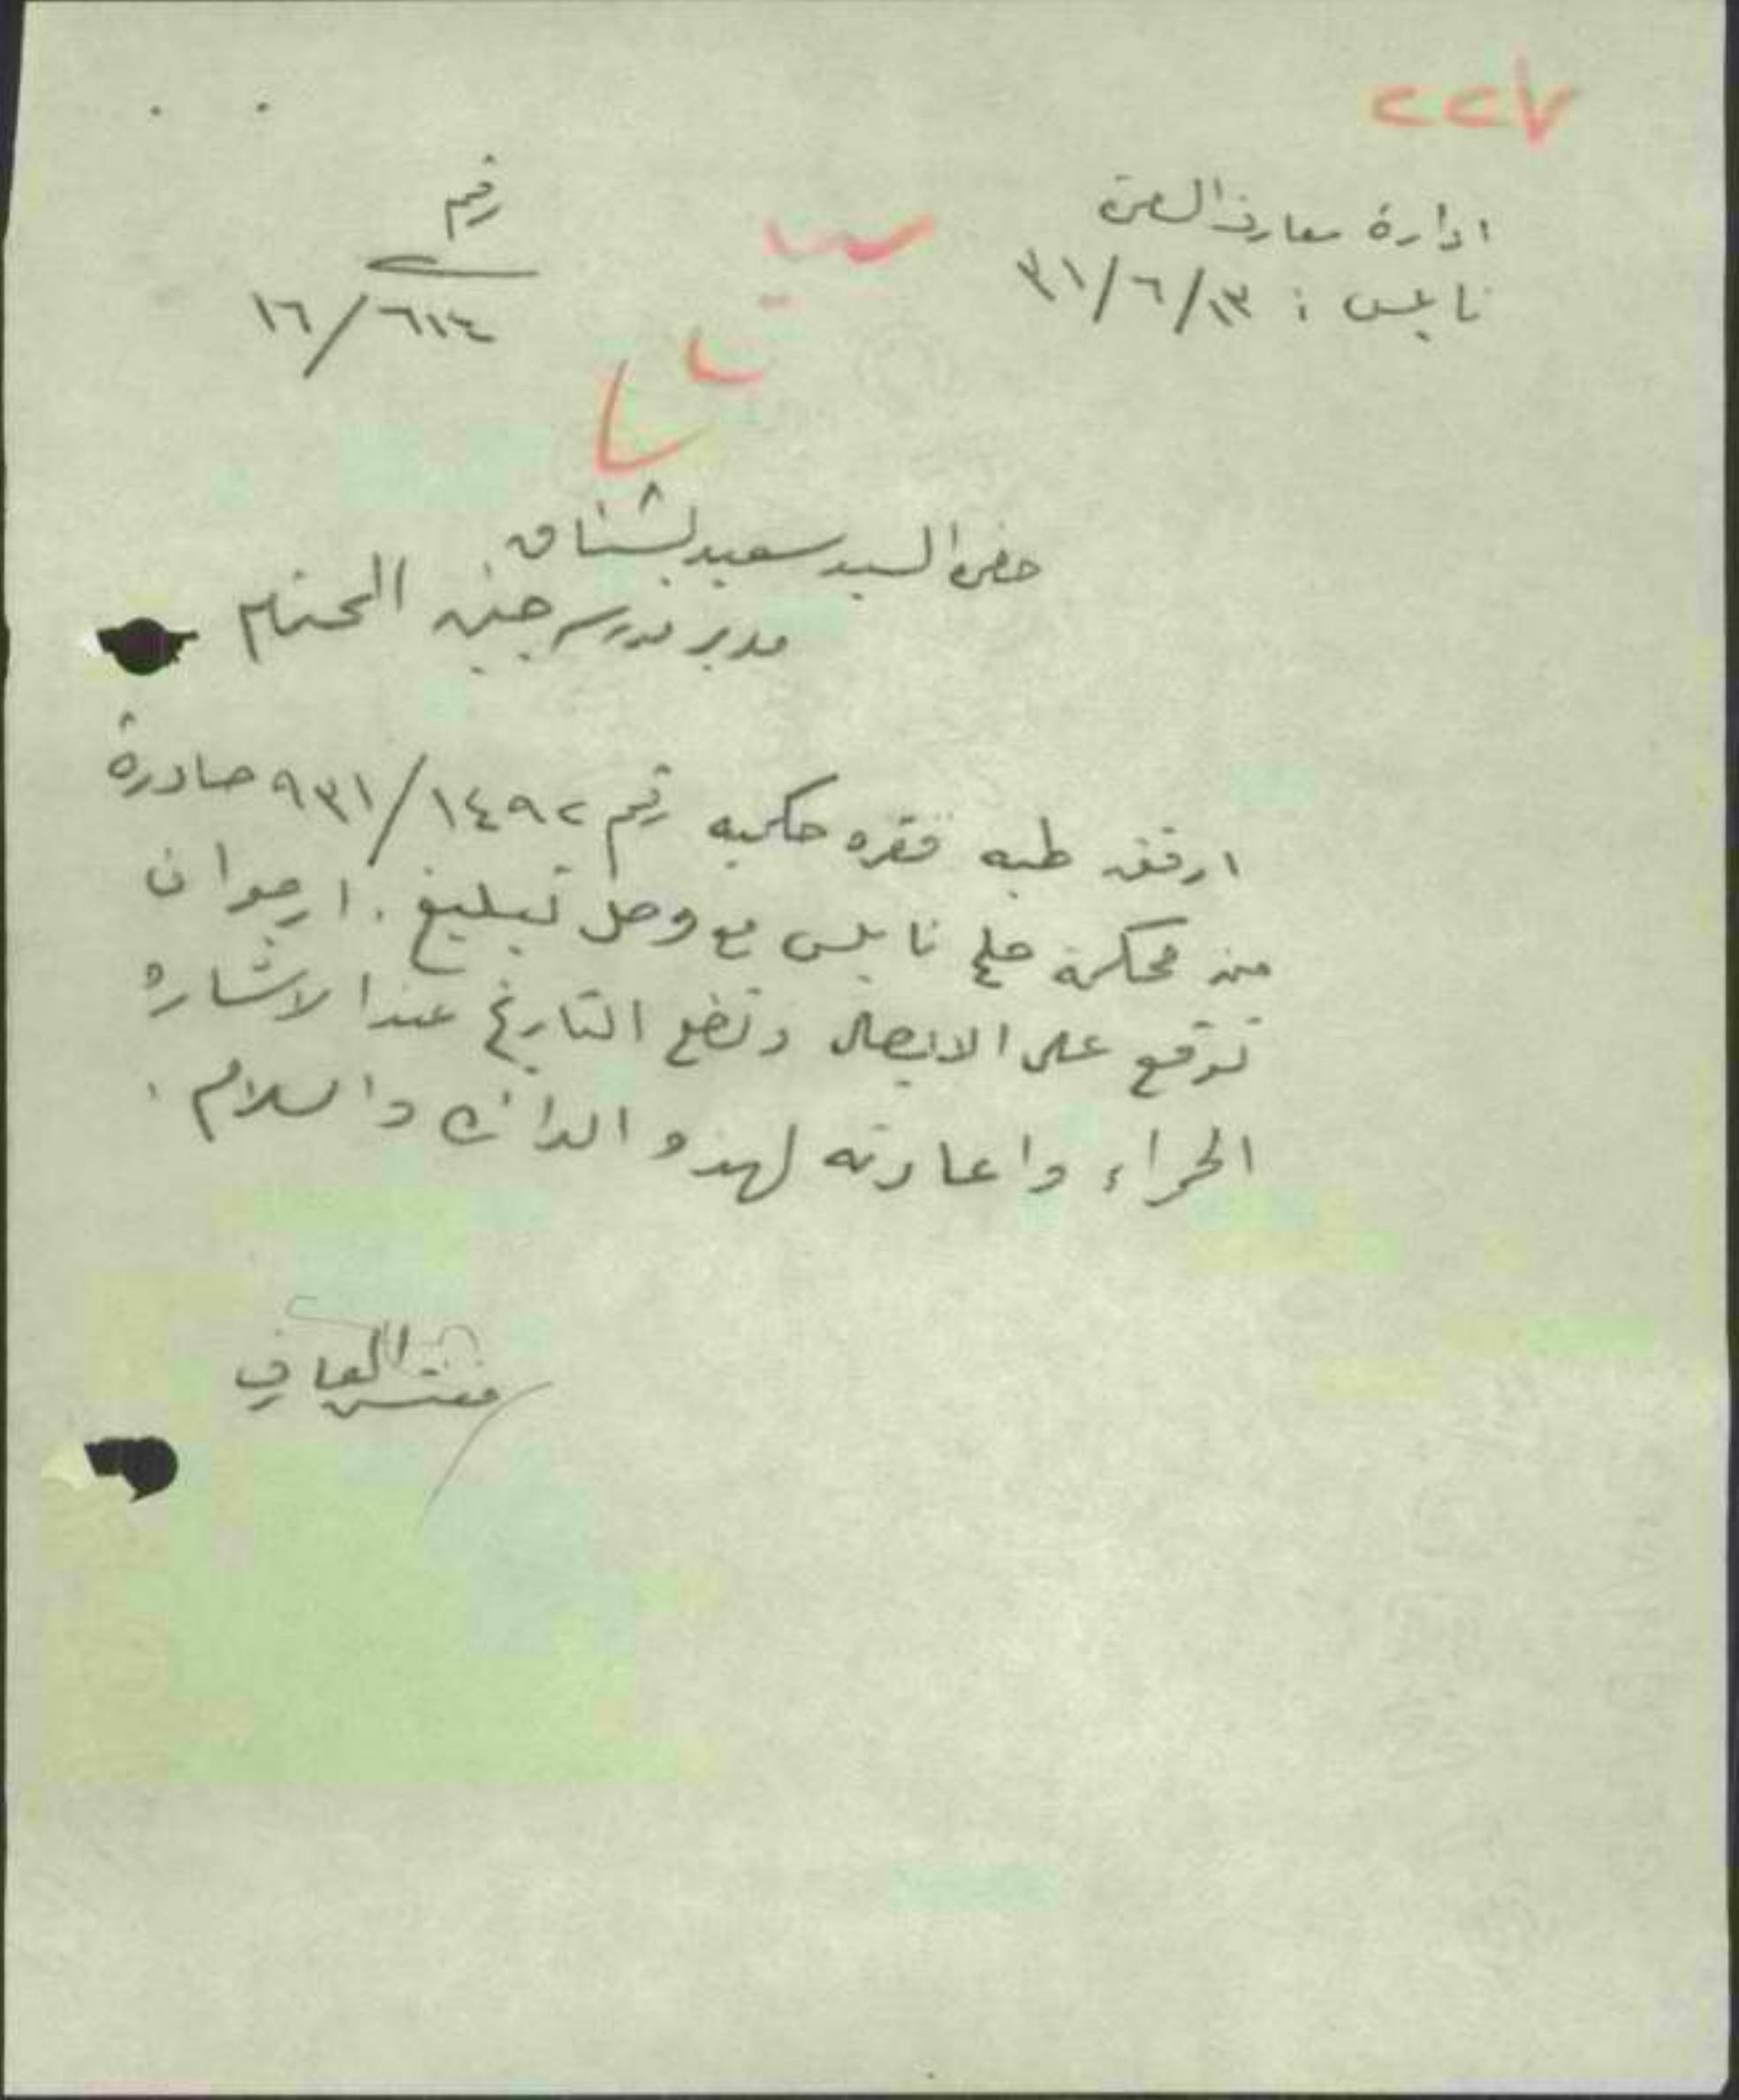 ٢٢٧
ادارة معارف السامرة
نابلس : ١٣/٦/٣١
رقم
١٦/٦١٤
حضرة السيد سعيد بشناق
مدير مدرسة جنين المحترم
ارفق طيه فقره حكميه رقم ١٤٩٢/٩٣١ صادرة
من محكمة صلح نابلس مع وصل تبليغ . ارجو ان
توقع على الايصال وتضع التاريخ عند الاشاره
الحمراء واعادته لهذه الدائرة والسلام .
مفتش المعارف